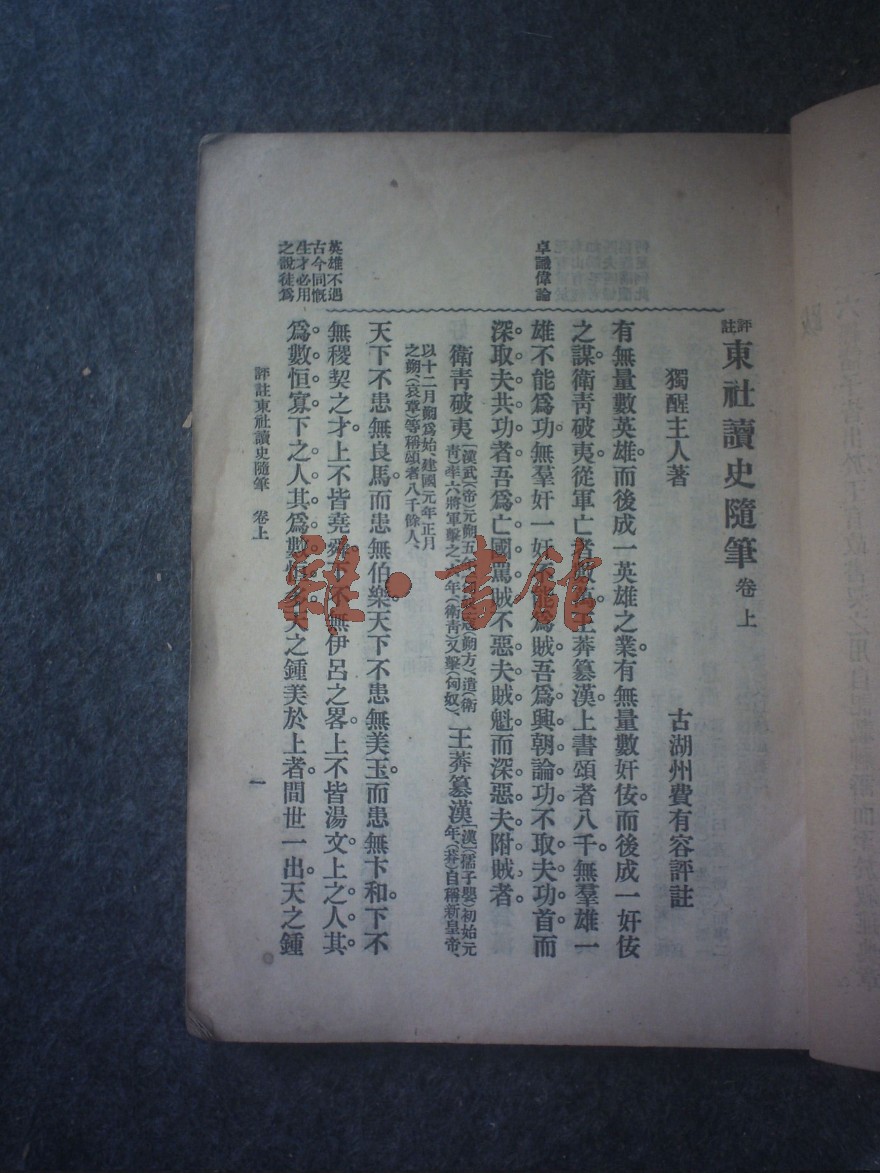 評註東社讀史隨筆 卷上
獨醒主人著 古湖州費有容評註
有無量數英雄而後成一英雄之業。有無量數奸佞而後成一奸佞
之謀。衛青破夷從軍亡者 王莽篡漢上書頌者八千無羣雄一
雄不能爲功。無羣奸一奸不能爲賊。吾爲興朝論功不取夫功首而
深取夫共功者。吾爲亡國罵賊不惡夫賊魁而深惡夫附賊者。
衛青破夷 〔漢武(帝)元朔五年 (朔方)、遣(衛
青)率六將軍擊之 年(衛青)又擊(匈奴)、 王莽篡漢 〔漢〕(孺子嬰)初始元
年、(莽)自稱新皇帝、
以十二月朔爲始、建國元年正月
之朔、(哀章)等稱頌者八千餘人、
天下不患無良馬而患無伯樂。天下不患無美玉而患無卞和。下不
無稷契之才上不皆堯舜。下不無伊呂之畧。上不皆湯文。上之人其
爲數恒寡。下之人其爲數恒多。天之鍾美於上者間世一出。天之鍾
卓識偉論
英雄不遇
古今同慨
生才必用
之說徒爲
評註東社讀史隨筆 卷上
一
雜·書館